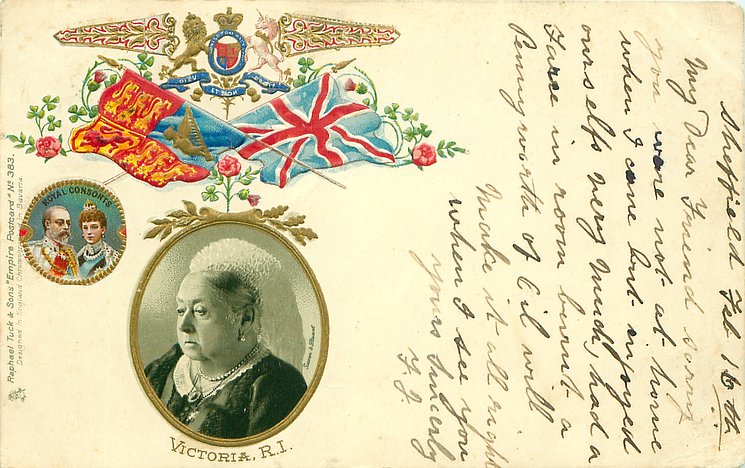 DIEU ET MON DROIT
ROYAL CONSORTS
VICTORIA, R.I.
Raphael Tuck & Sons' "Empire Postcard" No 383.
Designed in England Chromographed in Bavaria
Sheffield Feb 16th
My Dear Friend sorry
you ware not at home
when I came but enjoyed
ourselfs very much, had a
in room burnt a
Pennyworth of Oil will
Make it all right
when I see you
yours Sincerly
F. J.